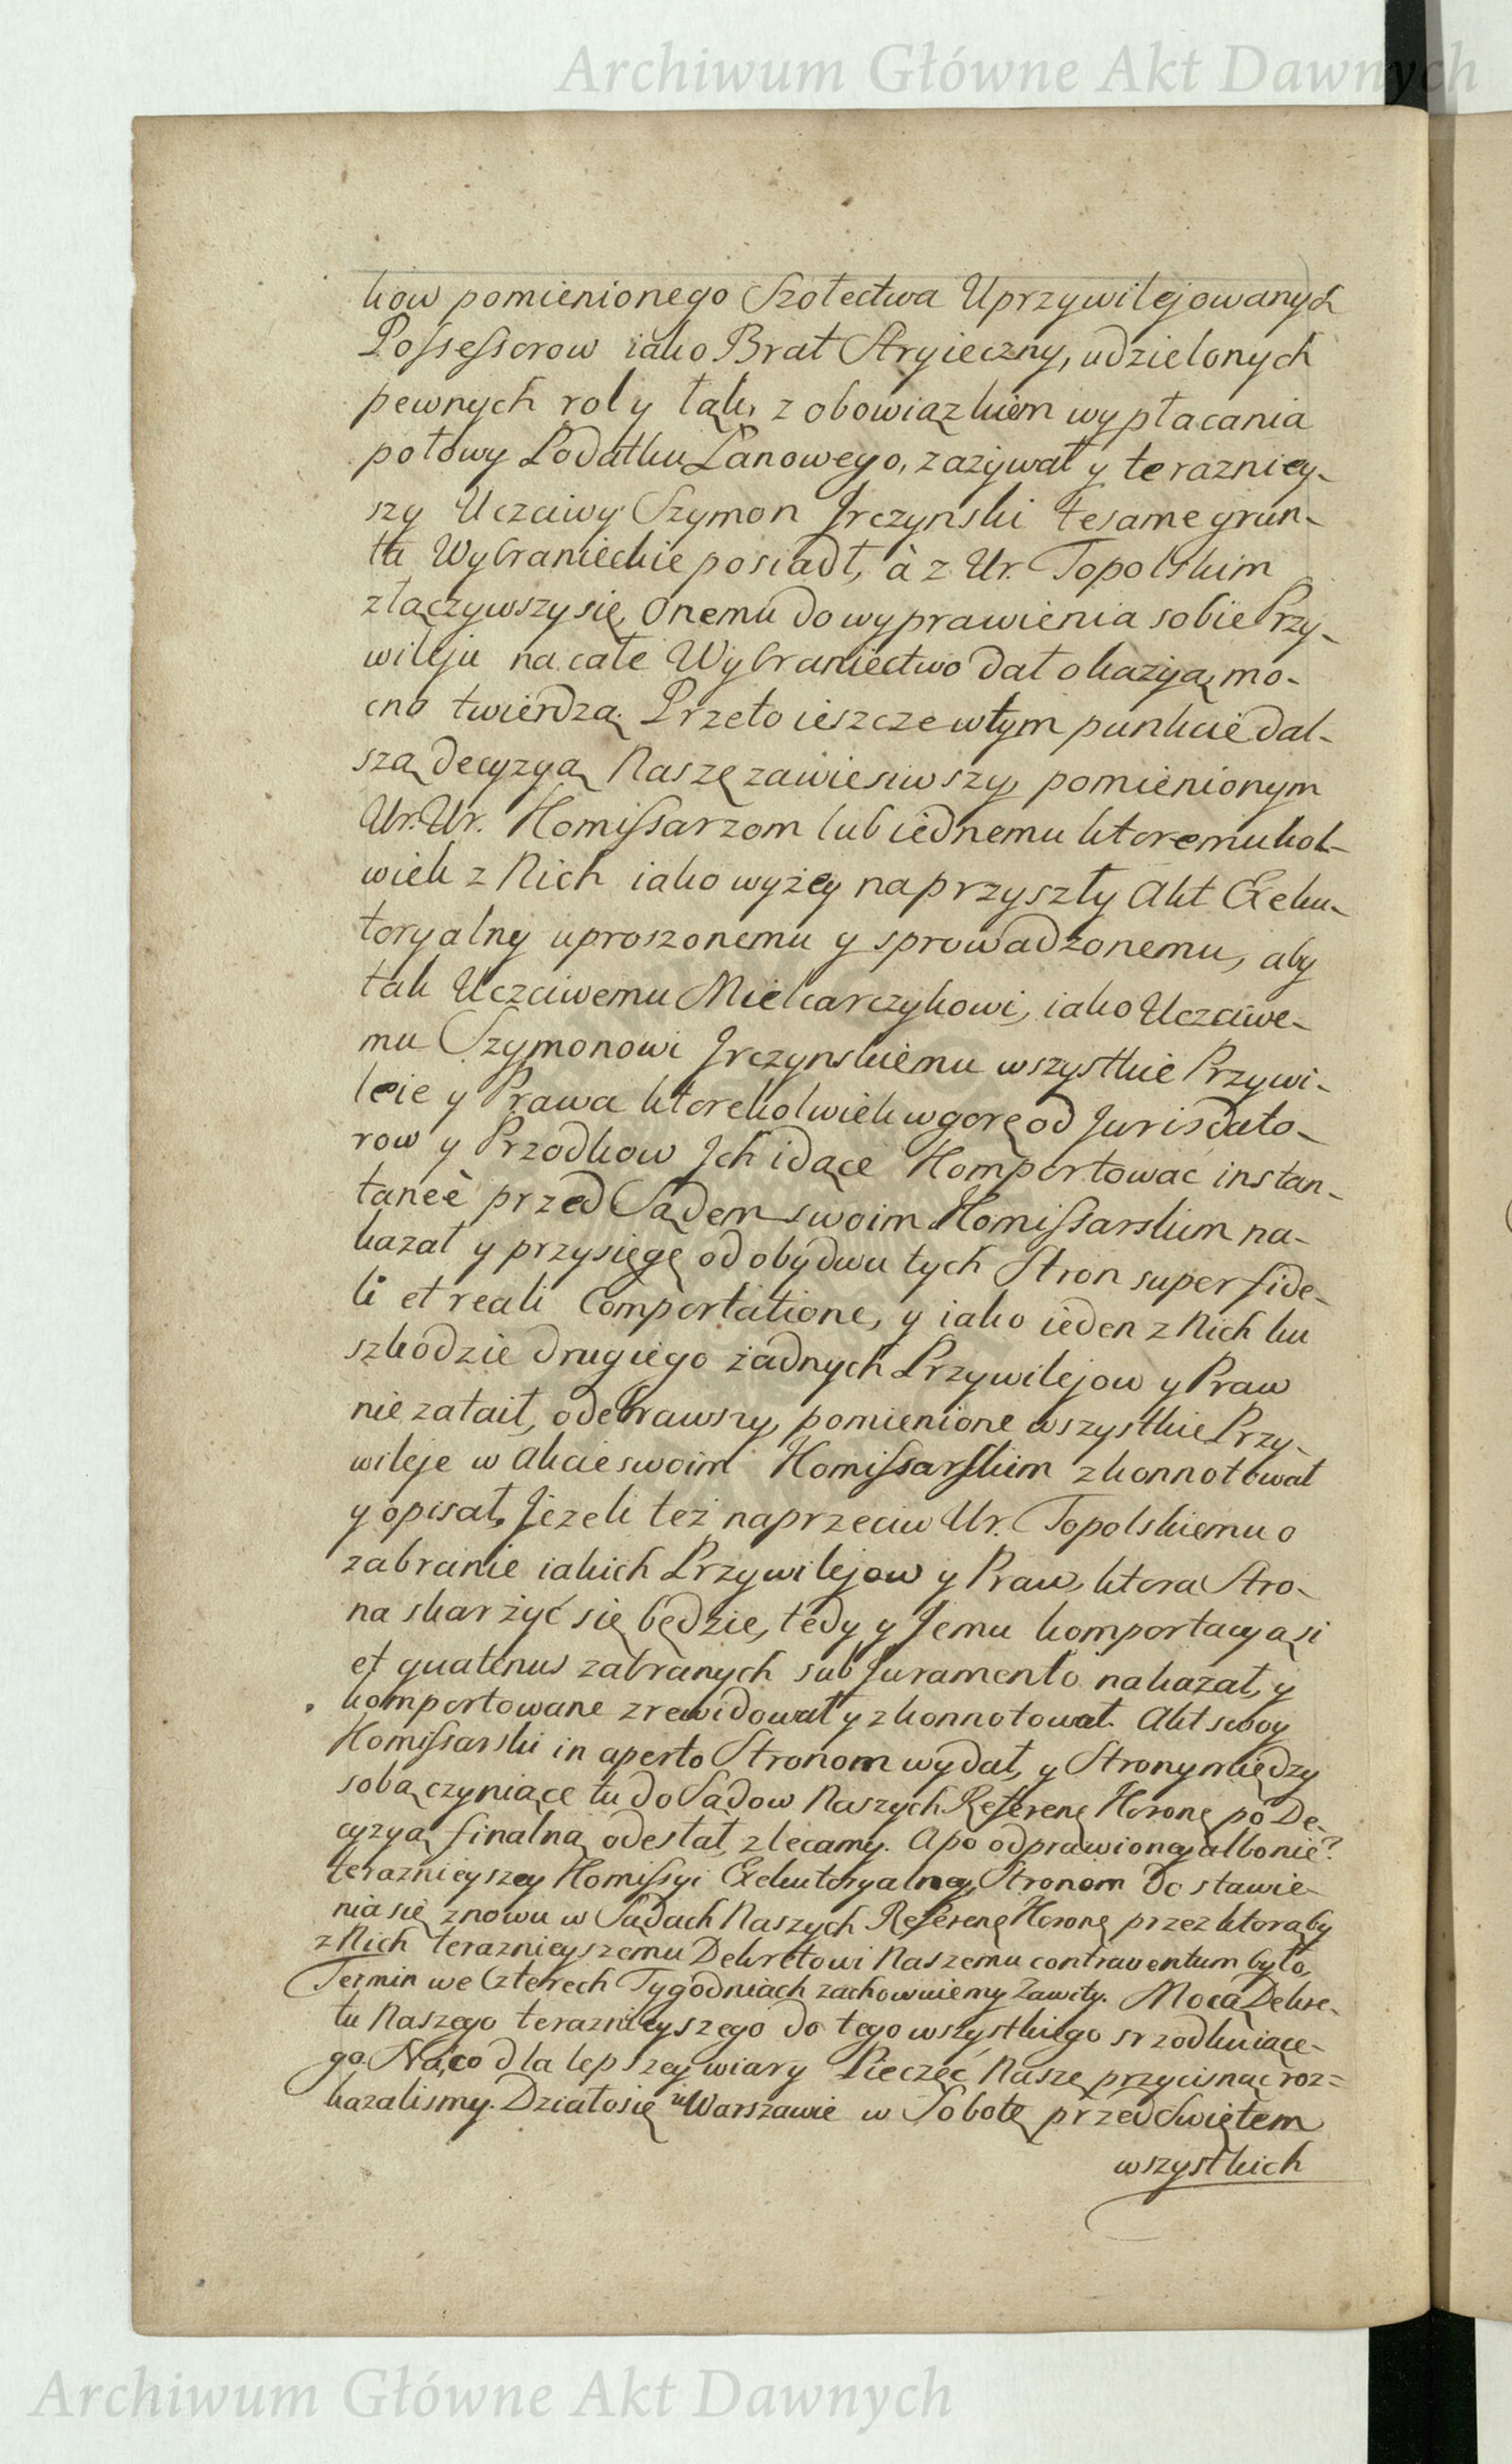 Archiwum Główne Akt Dawnych
kow pomienionego Szołectwa Uprzywilejowanych
Possessorow iako Brat Stryieczny, udzielonych
pewnych rol y łąk, z obowiązkiem wypłacania
połowy Podatku Łanowego, zazywał y terazniey-
szy Uczciwy Szymon Jrczynski tesame grun-
ta Wybranieckie posiadł, à z Ur. Topolskim
złączywszy się, Onemu do wyprawienia sobie Przy-
wileju na całe Wybraniectwo dał okazyą, mo-
cno twierdzą. Przeto ieszcze w tym punkcie dal-
szą decyzyą Naszę zawiesiwszy, pomienionym
Ur. Ur. Kommissarzom lub iednemu ktoremukol-
wiek z Nich iako wyżey na przyszły Akt Exeku-
toryalny uproszonemu y sprowadzonemu, aby
tak Uczciwemu Mielcarczykowi, iako Uczciwe-
mu Szymonowi Jrczynskiemu wszystkie Przywi-
leie y Prawa ktorekolwiek w gorę od Jurisdato-
row y Przodkow Jch idące Komportować instan-
taneè przed Sądem swoim Komissarskim na-
kazał y przysięgę od obydwu tych Stron super fide-
li et reali Comportatione, y iako ieden z Nich ku
szkodzie drugiego żadnych Przywilejow y Praw
nie zataił, odebrawszy, pomienione wszystkie Przy-
wileje w Akcie swoim Komissarskim zkonnotował
y opisał, Jeżeli też naprzeciw Ur. Topolskiemu o
zabranie iakich Przywilejow y Praw, ktora Stro-
na skarżyć się będzie, tedy y Jemu komportacyą si
et quatenus zabranych sub Juramento nakazał, y
komportowane zrewidował y zkonnotował. Akt swoy
Komissarski in aperto Stronom wydał, y Strony między
sobą czyniące tu do Sądow Naszych Referenę Koronę po De-
cyzyą finalną odesłał, zlecamy. A po odprawioney albo nie?
teraznieyszey Komissyi Exekutoryalney, Stronom do stawie-
nia się znowu w Sądach Naszych Referenę Koronę przez ktorąby
z Nich teraznieyszemu Dekretowi Naszemu contraventum było,
Termin we Czterech Tygodniach zachowuiemy Zawity. Mocą Dekre-
tu Naszego teraznieyszego do tego wszystkiego srzodkuiące-
go. Na co dla lepszey wiary Pieczęć Naszę przycisnąć roz=
kazalismy. Działo się w Warszawie w Sobotę przed Swiętem
wszystkich
Archiwum Główne Akt Dawnych